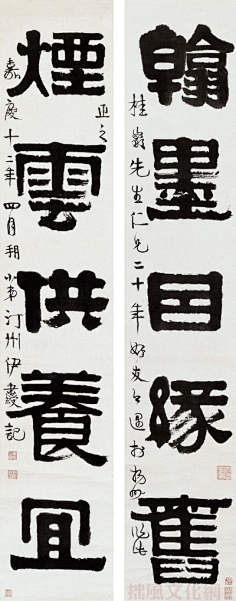 翰墨因緣舊
桂巖先生仁兄二十年好友
正之
煙雲供養宜
嘉慶十二年四月朔小弟汀州伊秉綬記
拙風文化網